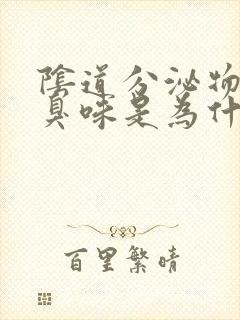 陰道分泌物
臭味是為什
百里繁晴